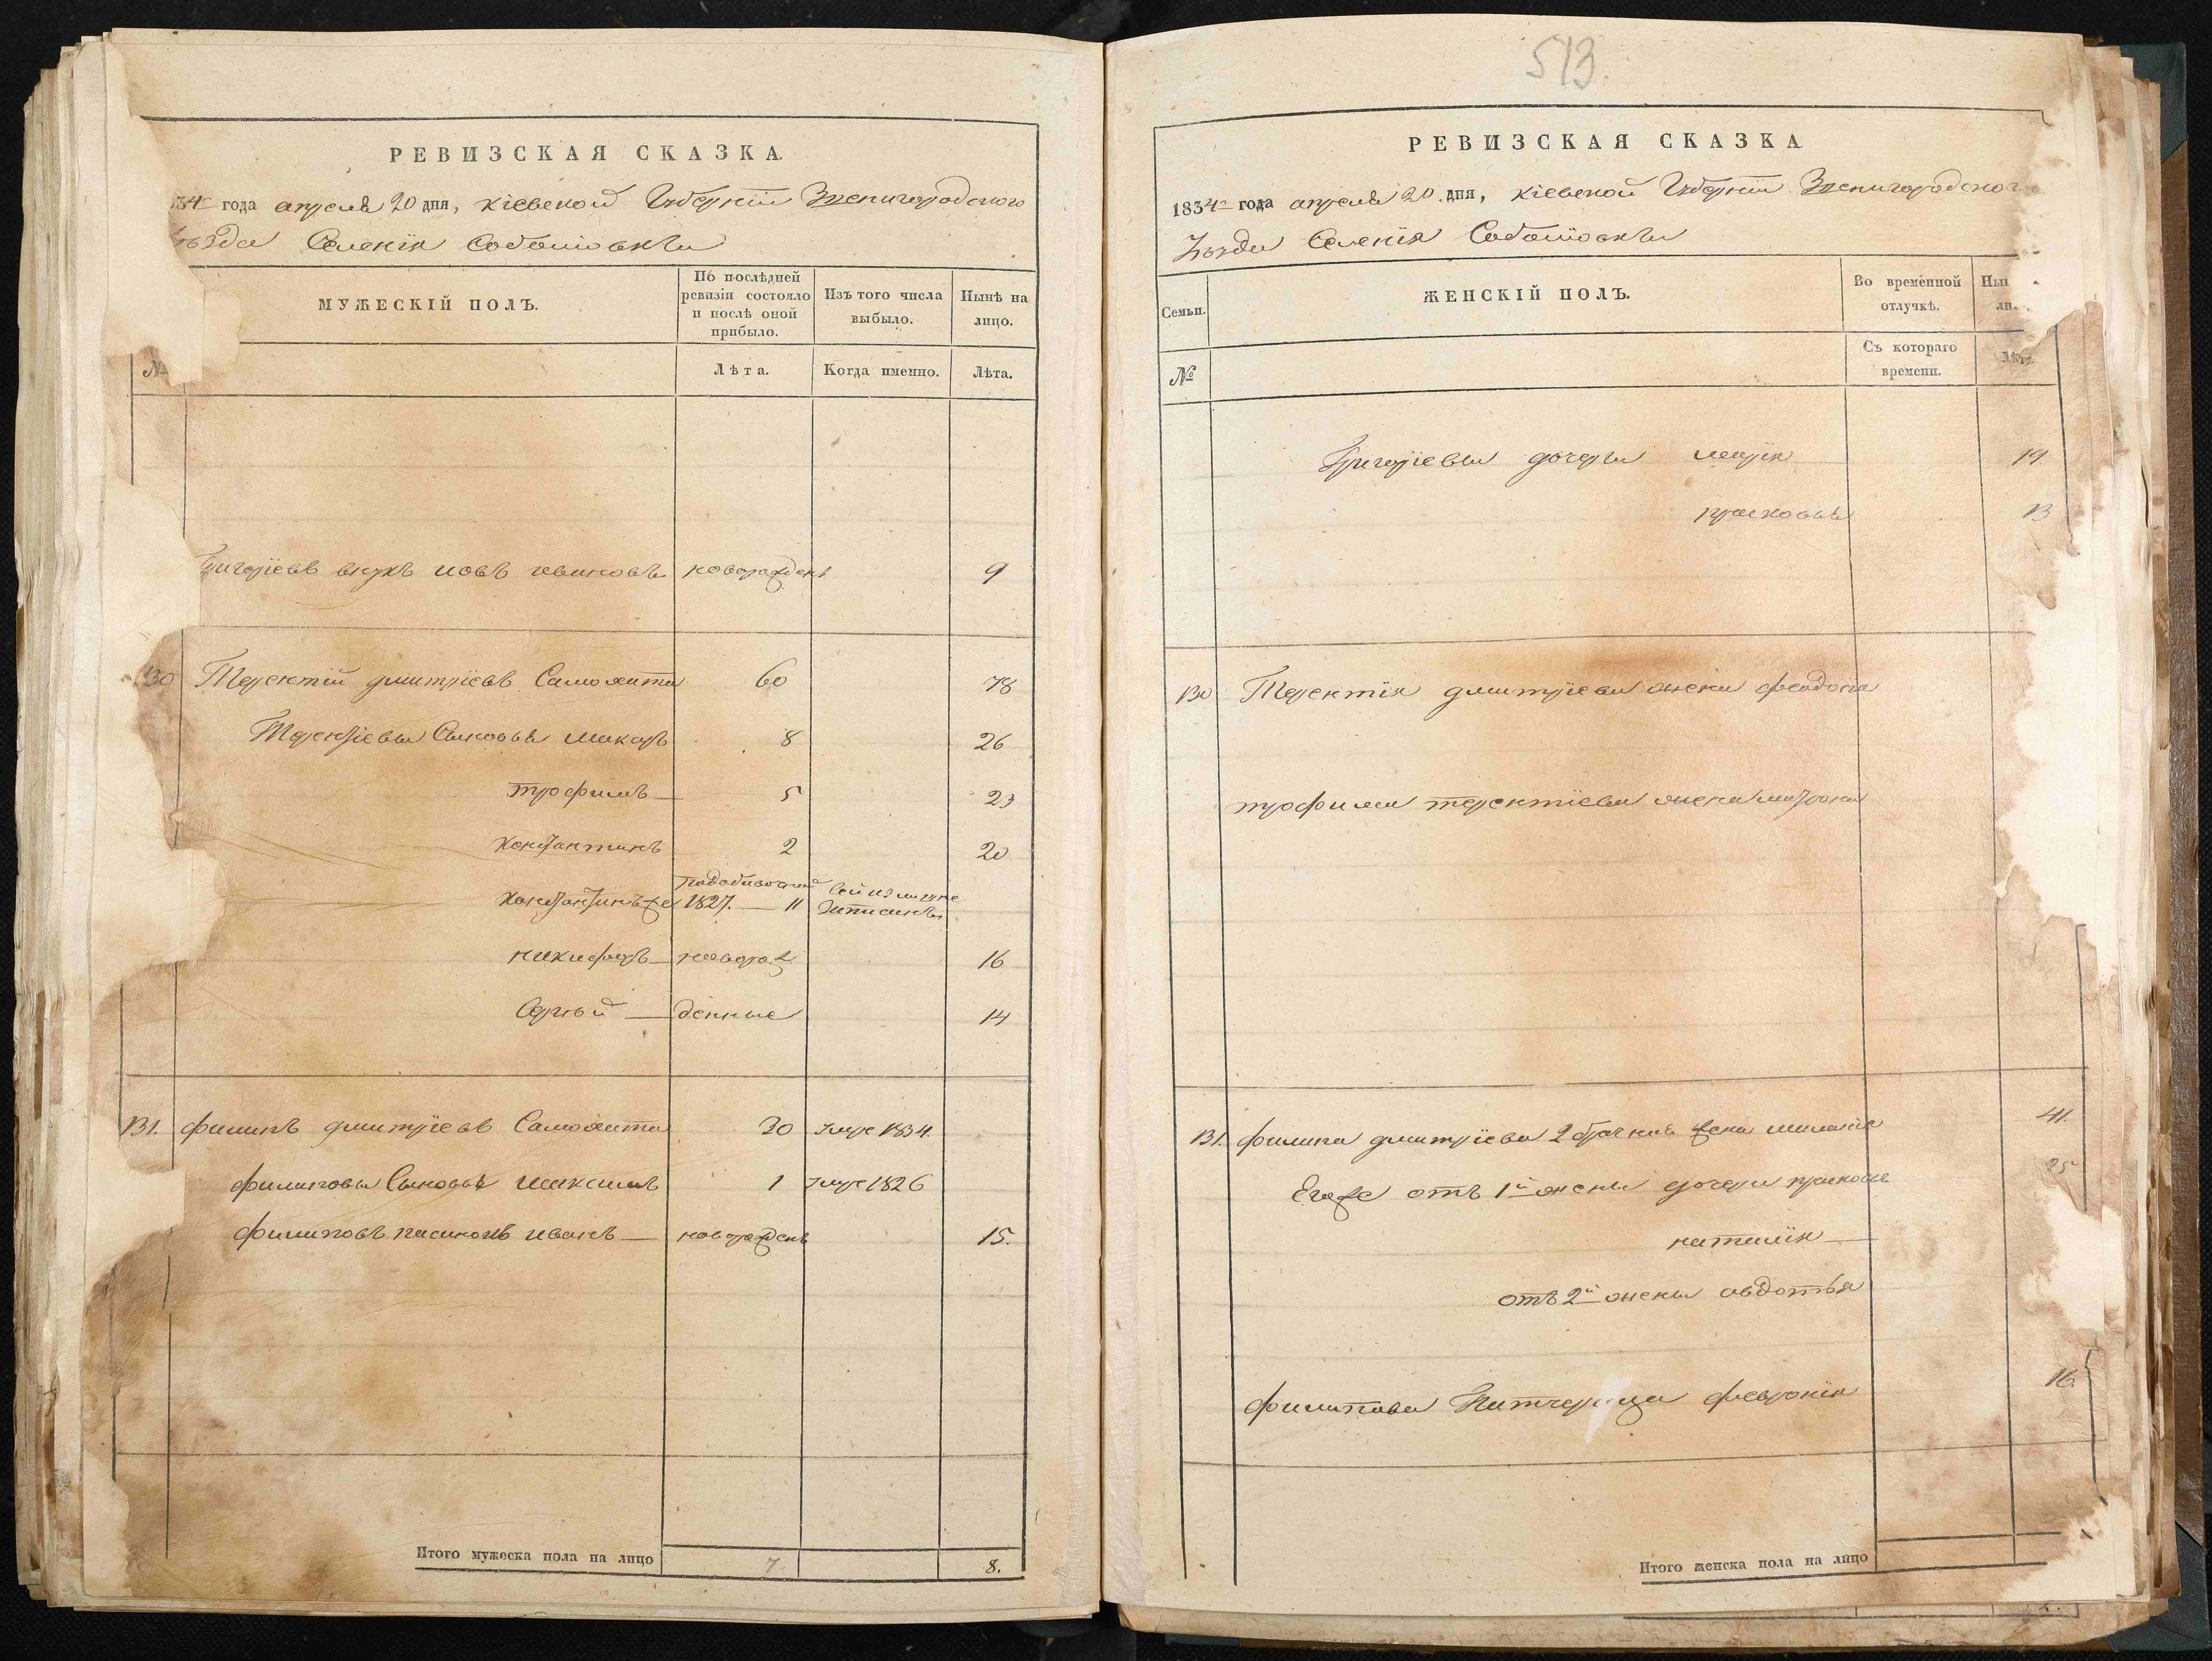 РЕВИЗСКАЯ СКАЗКА.
34 года апреля 20 дня, Кіевской Губерніи Звенигородского
уѣзда Селенія Соболіовки
МУЖЕСКІЙ ПОЛЪ.
По послѣдней ревизіи состояло и послѣ оной прибыло.
Изъ того числа выбыло.
Нынѣ на лицо.
№
Лѣта.
Когда именно.
Лѣта.
внукъ иовъ ивановъ новорожденъ 9
130 Терентій дмитріевъ Самохита 60 78
Терентіевы Сыновья макаръ 8 26
трофимъ 5 23
Константинъ 2 20
Константинъ же 1827. 11
никифоръ новорож 16
Сергѣй денные 14
131. филипъ дмитріевъ Самохита 30 умре 1834.
филиповы Сыновья максимъ 1 умре 1826
филиповъ пасинокъ иванъ новорожденъ 15.
Итого мужеска пола на лицо 7. 8.
513.
РЕВИЗСКАЯ СКАЗКА
1834 года апреля 20 дня, Кіевской Губерніи Звенигородского
Уѣзда Селенія Соболіовки
Семьи.
ЖЕНСКІЙ ПОЛЪ.
Во временной отлучкѣ.
Нын
ли
№
Съ котораго времени.
Лѣта.
Григоріевы дочери марія 19.
прасковья 13
130 Терентія дмитріева жена феодосія
трофима терентіева жена матрона
131. филипа дмитріева 2 брачная жена меланія 41.
Егоже отъ 1й жены дочери прасковья 25
наталія
отъ 2й жены авдотья
филипова Падчерица февронія 16
Итого женска пола на лицо